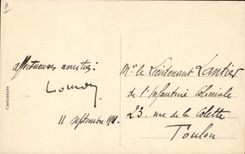 affectueuses amitiés!
11 septembre 191
Mr le Lieutenant Lantier
de l'Infanterie Coloniale
23. rue de la Colette
Toulon